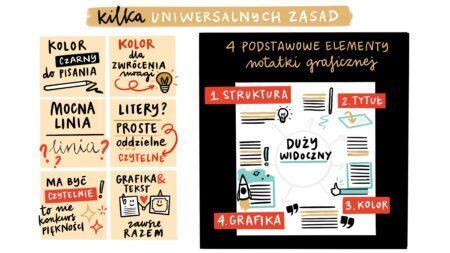 kilka UNIWERSALNYCH ZASAD
KOLOR
CZARNY
do PISANIA
KOLOR
dla
ZWRÓCENIA
uwagi
MOCNA
LINIA
linia
? ?
LITERY?
PROSTE
oddzielne
CZYTELNE
MA BYĆ
CZYTELNIE!
to nie
konkurs
PIĘKNOŚCI
GRAFIKA &
TEKST
zawsze
RAZEM
4 PODSTAWOWE ELEMENTY
notatki graficznej
1. STRUKTURA
2. TYTUŁ
DUŻY
WIDOCZNY
3. KOLOR
4. GRAFIKA